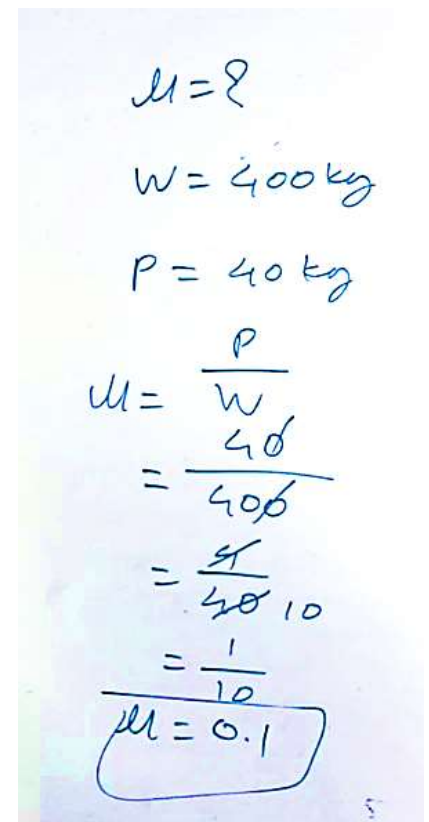 μ = ?
W = 400 kg
P = 40 kg
μ = P/W
= 40/400
= 4/40 10
= 1/10
μ = 0.1